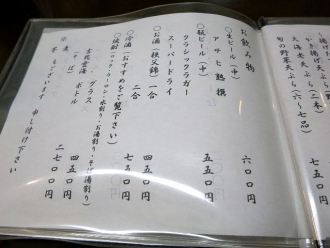 旬の野菜天ぷら(六〜七品)
大海老天ぷら(二本)
お飲み物
○生ビール(中) 六〇〇円
アサヒ熟撰
○瓶ビール(中) 五五〇円
クラシックラガー
スーパードライ
○お酒(秩父錦) 一合 四五〇円
二合
○冷酒(おすすめをご覧下さい) 七五〇円
○焼酎(ロック・水割り・お湯割り・そば湯割り)
グラス 四五〇円
吉兆雲海 ボトル 二七〇〇円
(そば)
等もございます 申し付け下さい